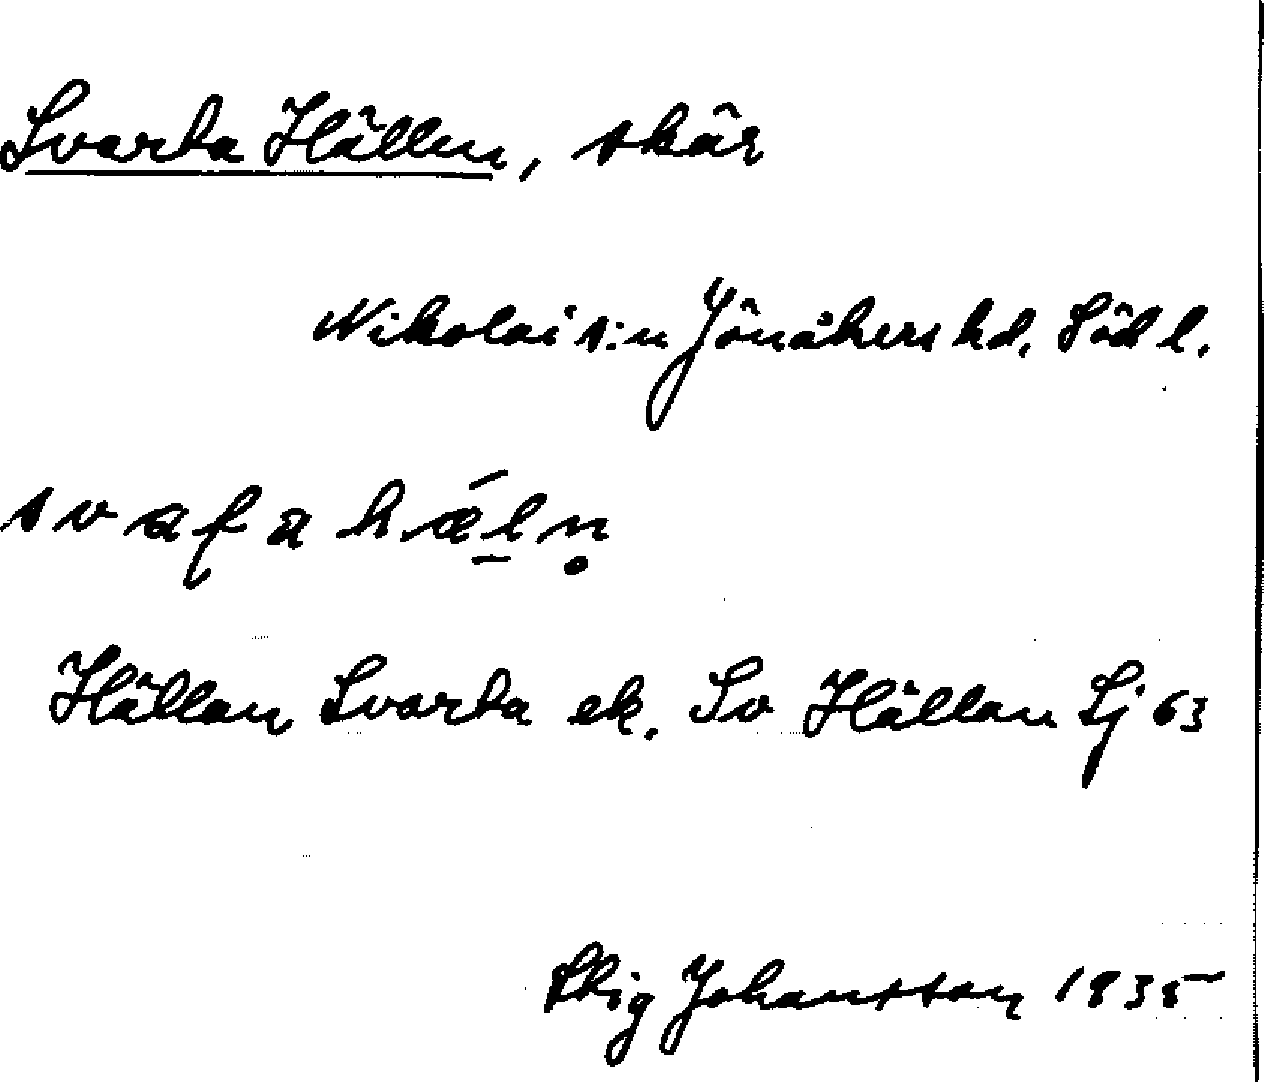 Svarta Hällen, skär
Nikolai s:n Jönåkers hd. Södl.
svaʃa hǽl̲ṇ
Hällan Svarta ek. Sv Hällan Sj 63
Stig Johansson 1935